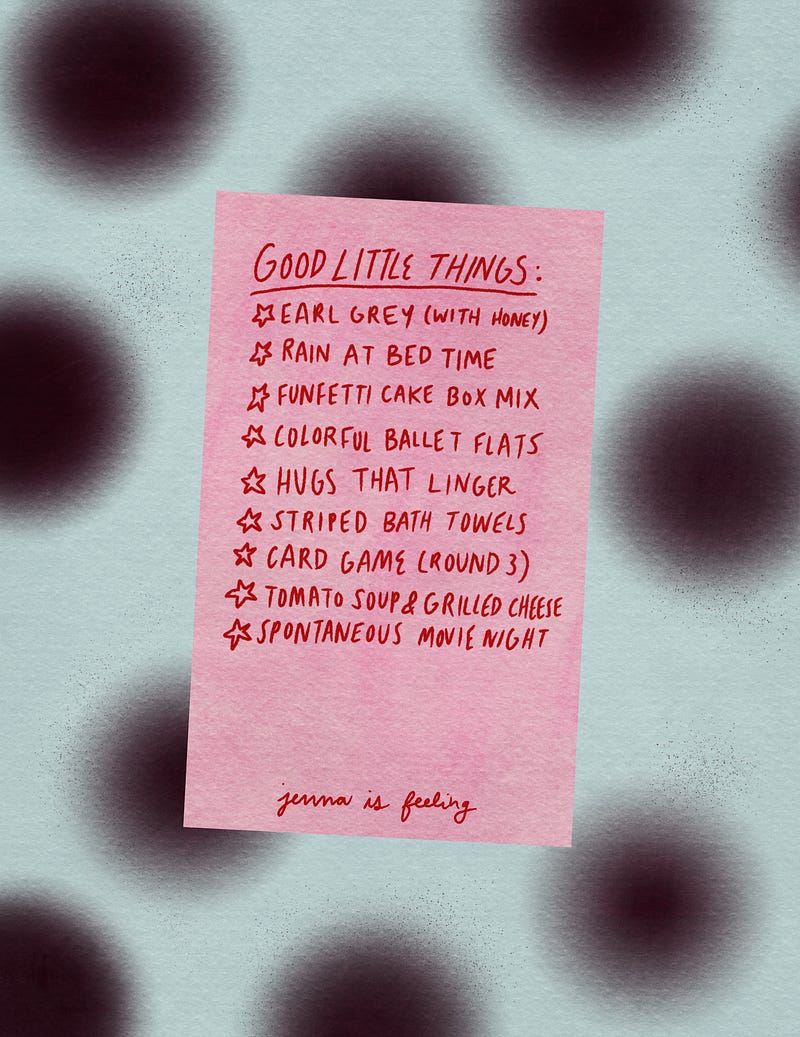 GOOD LITTLE THINGS:
EARL GREY (WITH HONEY)
RAIN AT BED TIME
FUNFETTI CAKE BOX MIX
COLORFUL BALLET FLATS
HUGS THAT LINGER
STRIPED BATH TOWELS
CARD GAME (ROUND 3)
TOMATO SOUP & GRILLED CHEESE
SPONTANEOUS MOVIE NIGHT
jenna is feeling